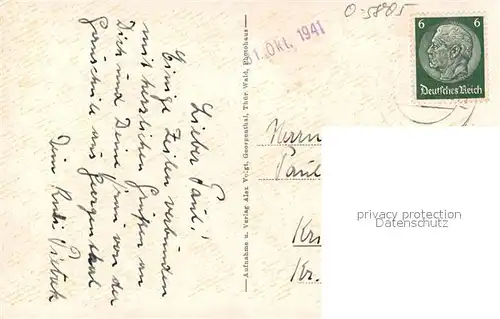 O-5885
6 6
Deutsches Reich
1. Okt. 1941
Lieber Paul!
Einige Zeilen verbunden
mit herzlichen Grüßen an
Dich und Deine von der
aus Georgenthal
Dein Rudi
Aufnahme u. Verlag Alex Voigt, Georgenthal, Thür. Wald, Photohaus
Herrn
Paul
Kr
Kr.
privacy protection
Datenschutz